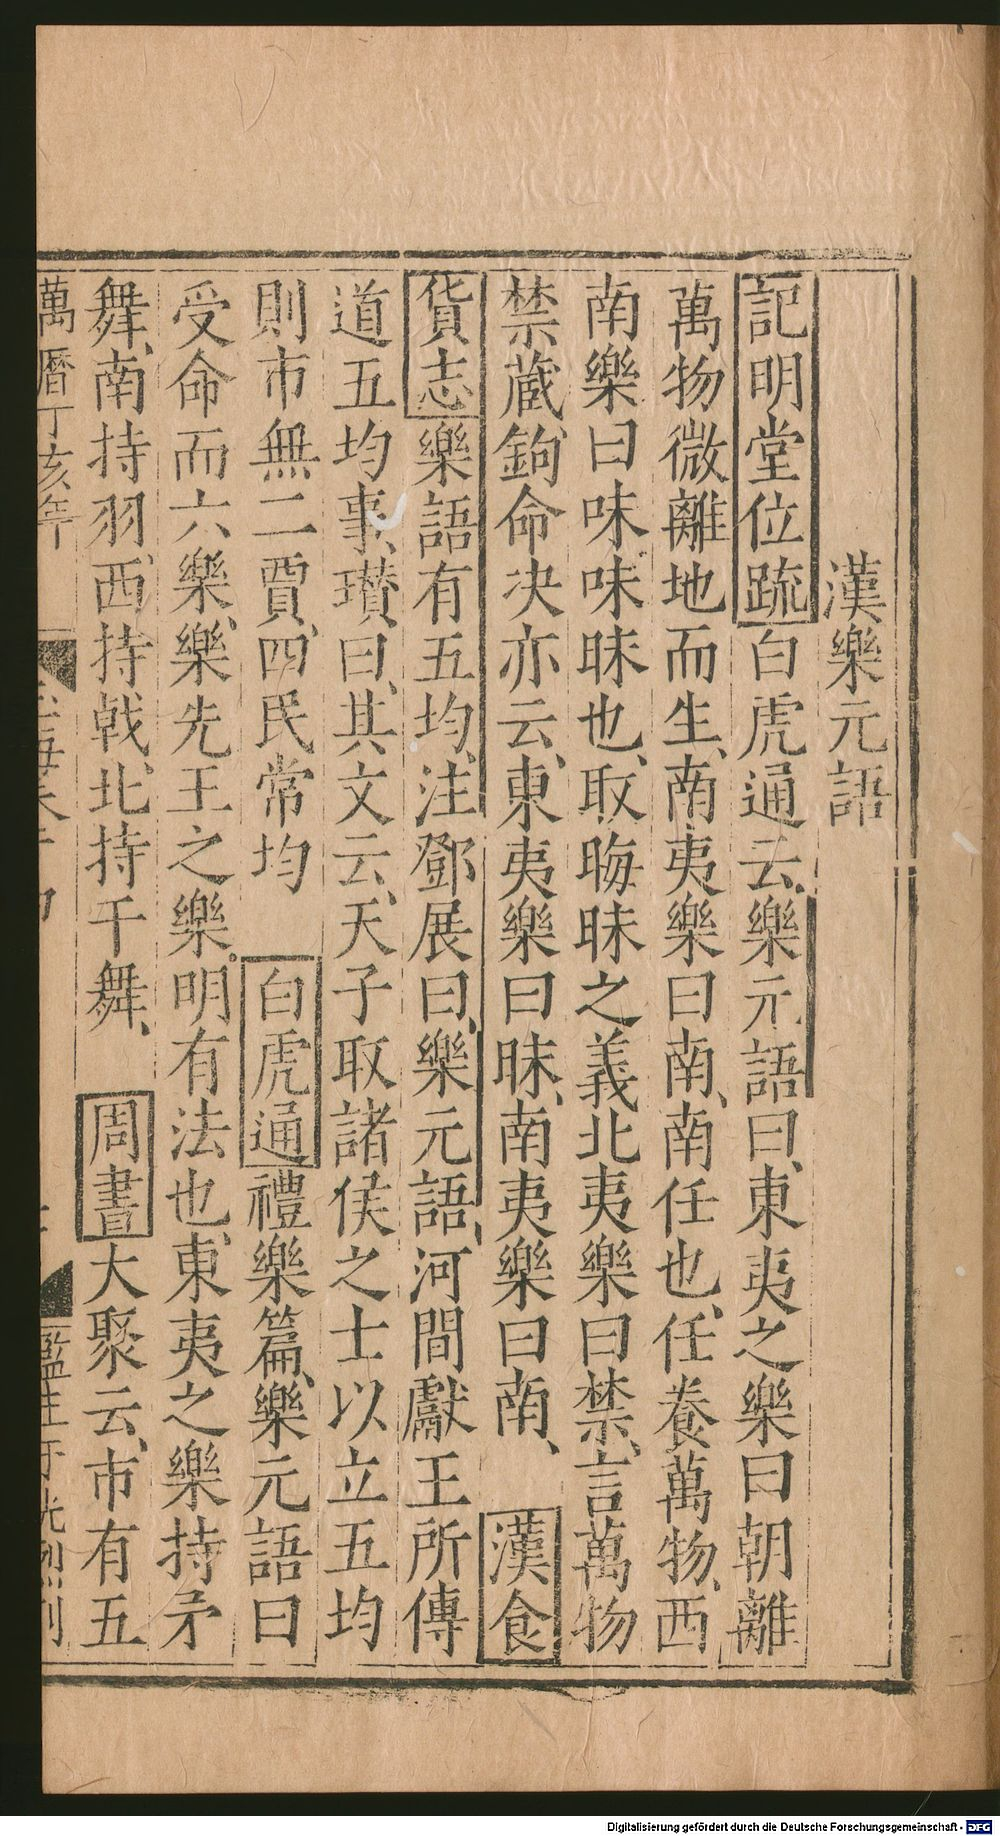 漢樂元語
記明堂位䟽白虎通云樂元語曰東夷之樂曰朝離
萬物微離地而生南夷樂曰南南任也任養萬物西
南樂曰味味昧也取晦昧之義北夷樂曰禁言萬物
禁蔵鉤命决亦云東夷樂曰昧南夷樂曰南 漢食
貨志樂語有五均注鄧展曰樂元語河間獻王所傳
道五均事瓉曰其文云天子取諸侯之士以立五均
則市無二賈四民常均 白虎通禮樂篇樂元語曰
受命而六樂樂先王之樂明有法也東夷之樂持矛
舞南持羽西持戟北持干舞 周書大聚云市有五
萬曆丁亥年
監生
刊
Digitalisierung gefördert durch die Deutsche Forschungsgemeinschaft - DFG